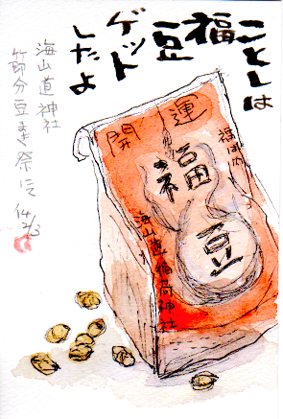 ことしは
福豆
ゲット
したよ
海山道神社
節分豆まき祭にて
14 2/3
開運
福は内
福豆
海山道稲荷神社